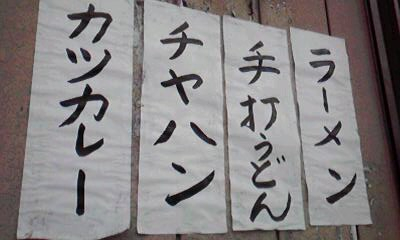 ラーメン
手打うどん
チャハン
カツカレー